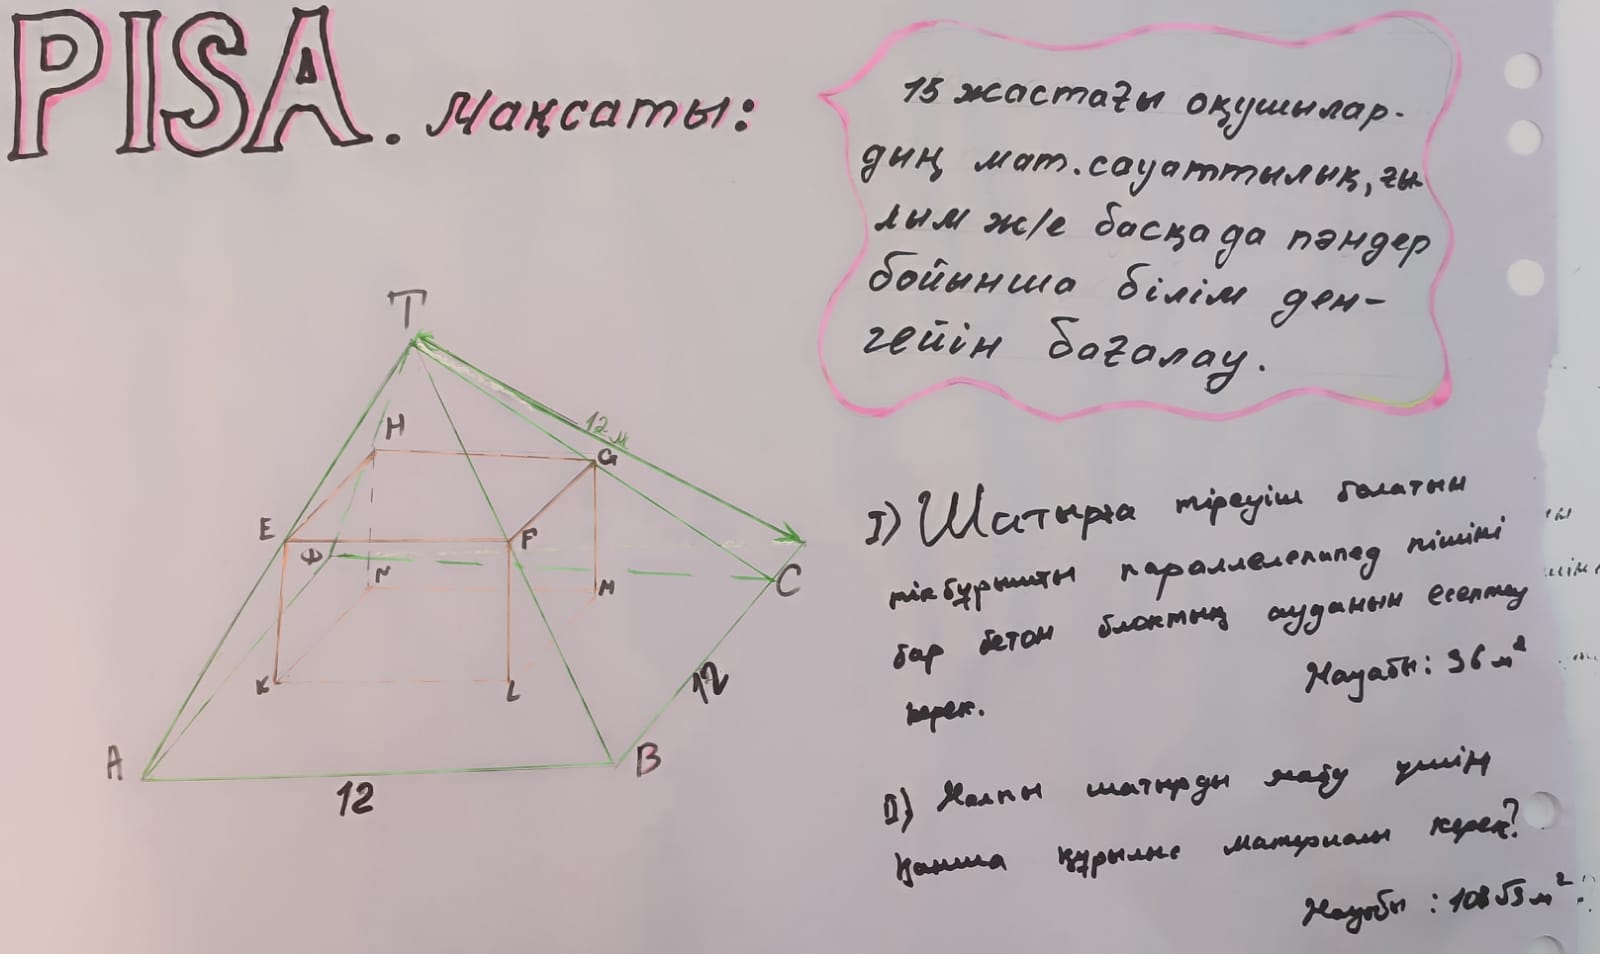 PISA. Мақсаты:
15 жастағы оқушылар-
дың мат. сауаттылық, ғы-
лым ж/е басқа да пәндер
бойынша білім ден-
гейін бағалау.
T
H
12 м
G
E
F
Ф
N
M
C
K
L
12
A
B
12
I) Шатырға тіреуіш болатын
тікбұрышты параллелепипед пішіні
бар бетон блоктың ауданын есептеу
керек.
Жауабы: 96 м²
II) Жалпы шатырды жабу үшін
қанша құрылыс материалы керек?
Жауабы: 108√3 м².